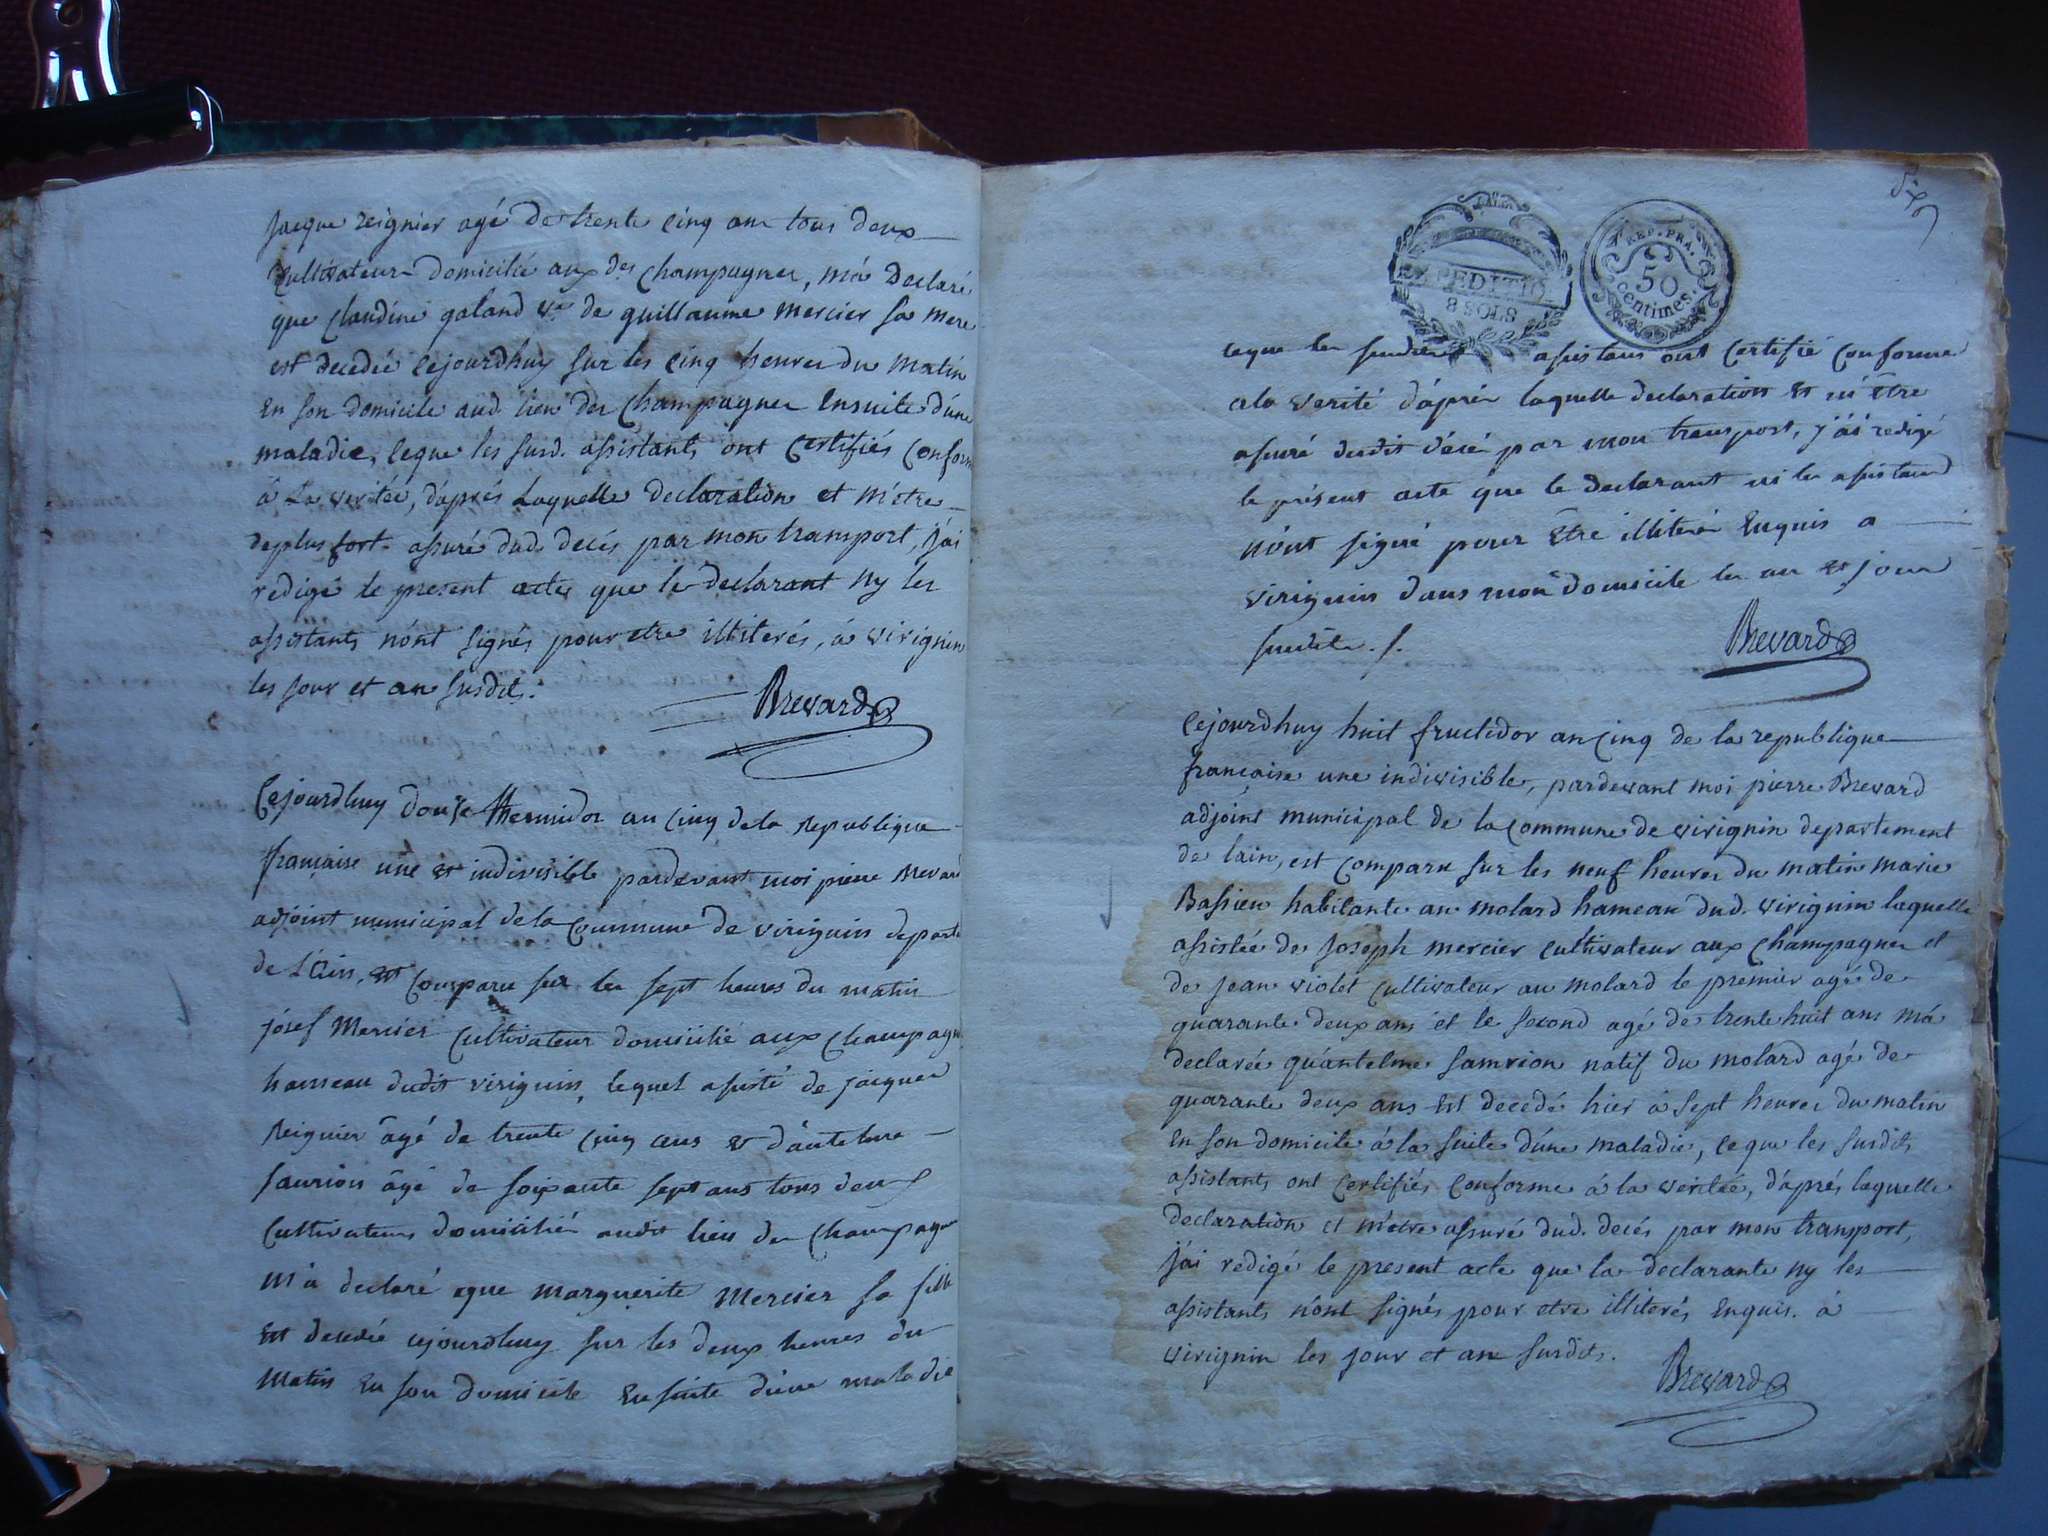 Jacque reignier agé de trente cinq ans tous deux
Cultivateurs domicilié aux des Champagnes, m'a declaré
que Claudine galand ve de guillaume mercier sa mere
est decedée cejourdhuy sur les cinq heures du matin
En son domicile aud. lieu des Champagnes Ensuite d'une
maladie, ceque les susd. assistants ont Certifiés Conform
à La veritée, d'aprés Laquelle declaration et m'etre
deplus fort assuré dud. decés par mon transport, j'ai
redigé le present acte que le declarant ny les
assistants n'ont signés pour etre illiterés, à virignin
les jour et an susdits.
Brevard
Cejourdhuy douze thermidor an cinq de la Republique
française une et indivisible pardevant moi pierre Brevard
adjoint municipal de la Commune de virignin depart
de l'Ain, est comparu sur les sept heures du matin
josef Mercier Cultivateur domicilié aux Champagn
hameau dudit virignin, lequel assisté de jacques
Reignier âgé de trente cinq ans et d'antelme
samrion âgé de soixante sept ans tous deux
Cultivateurs domiciliés audit lieu de Champagne
m'a declaré que marguerite Mercier sa fille
Est decedée cejourdhuy sur les deux heures du
Matin En son domicile Ensuite d'une maladie
six
EXPEDITIO
8 SOLS
REP. FRA.
50
centimes.
ceque les susdits assistans ont Certifié Conforme
a la verité d'aprés laquelle declaration et m'être
assuré dudit décé par mon transport, j'ai redigé
le présent acte que le declarant ni les assistans
n'ont signé pour Être illiteré Enquis a
virignin dans mon domicile les an et jour
susdits.
Brevard
Cejourdhuy huit fructidor an Cinq de la republique
française une indivisible, pardevant moi pierre Brevard
adjoint municipal de la Commune de virignin departement
de lain, est comparu sur les neuf heures du matin marie
Bassieu habitante au molard hameau dud. virignin laquelle
assistée de Joseph mercier cultivateur aux Champagnes et
de Jean violet Cultivateur au molard le premier agé de
quarante deux ans et le second agé de trente huit ans m'a
declarée qu'antelme samrion natif du molard agé de
quarante deux ans est decedé hier à sept heures du matin
En son domicile à la suite d'une maladie, ce que les susdits
assistants ont Certifiés Conforme à la veritée, d'aprés laquelle
declaration et m'etre assuré dud. decés par mon transport,
j'ai redigé le present acte que la declarante ny les
assistants n'ont signés pour etre illiterés Enquis. à
virignin les jour et an susdits.
Brevard